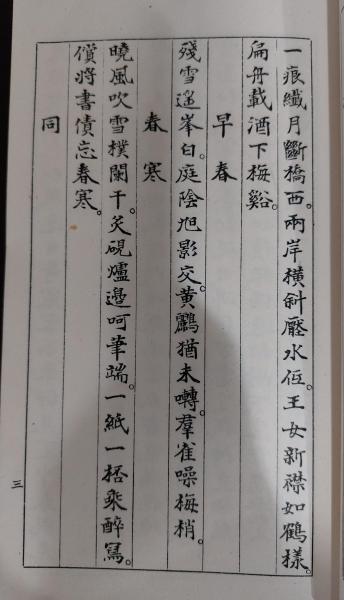 一痕纖月斷橋西。兩岸橫斜壓水低。王女新襟如鶴樣。
扁舟載酒下梅谿。
早春
殘雪遙峯白。庭陰旭影交。黃鸝猶未囀。羣雀噪梅梢。
春寒
曉風吹雪撲闌干。炙硯爐邊呵筆端。一紙一揩乘醉寫。
償將書債忘春寒。
同
三